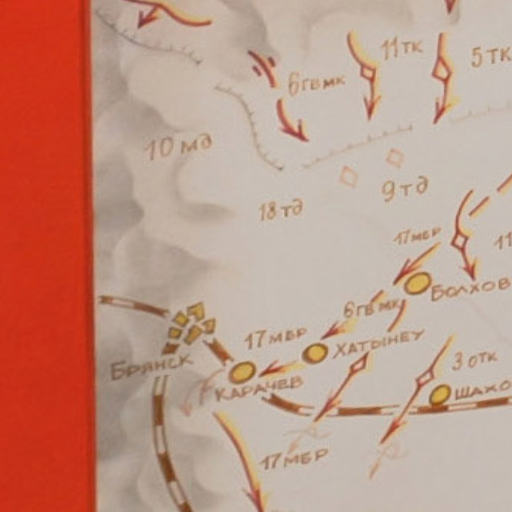 11ТК
5ТК
6ГВМК
10 МД
9ТД
18 ТД
17МБР
11
БОЛХОВ
6ГВМК
17МБР
ХАТЫНЕУ
БРЯНСК
3 0ТК
КАРАЧЕВ
ШАХО
17МБР